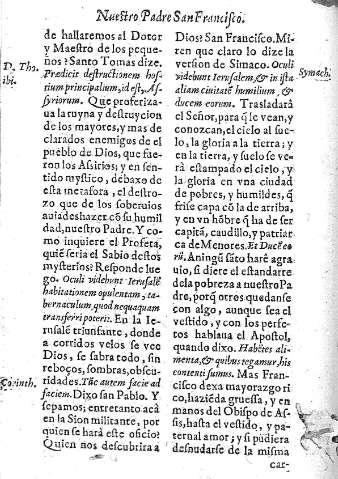 Nuestro Padre San Francisco.
de hallaremos al Dotor
y Maestro de los peque
ños? Santo Tomas dize.
D. Tho.
ibi.
Prædicit destructionem hos
tium principalium, id est, As-
syriorum. Que profetiza-
ua la ruyna y destruycion
de los mayores, y mas de
clarados enemigos de el
pueblo de Dios, que fue
ron los Asirios; y en sen-
tido mystico, debaxo de
esta metafora, el destro-
zo que de los soberuios
auia de shazer cõ su humil
dad, nuestro Padre. Y co-
mo inquiere el Profeta,
quiẽ seria el Sabio destos
mysterios? Responde lue
go. Oculi videbunt Ierusalẽ
habitationem opulentam, ta-
bernaculum, quod nequaquam
transferri poterit. En la Ie-
rusalẽ triunfante, donde
a corridos velos se vee
Dios, se sabra todo, sin
reboços, sombras, obscu-
Corinth.
ridades. Tũc autem facie ad
faciem. Dixo san Pablo. Y
sepamos; entretanto acà
en la Sion militante, por
quien se harà este oficio?
Quien nos descubrira a
Dios? San Francisco. Mi-
ren que claro lo dize la
version de Simaco. Oculi
Symach.
videbunt Ierusalem, & in ista
aliam ciuitatẽ humilium, &
ducem eorum. Trasladarà
el Señor, para q̃ le vean, y
conozcan, el cielo al sue-
lo, la gloria a la tierra; y
en la tierra, y suelo se ve-
rà estampado el cielo, y
la gloria en vna ciudad
de pobres, y humildes, q̃
frise capa cõ la de arriba,
y en vn hõbre q̃ ha de ser
capitã, caudillo, y patriar
ca de Menores. Et Ducẽ eo
rũ. A ningũ sãto harè agra
uio, si diere el estandarte
de la pobreza a nuestro Pa
dre, porq̃ otros quedanse
con algo, aunque sea el
vestido, y con los perfe-
ctos hablaua el Apostol,
quando dixo. Habẽtes ali-
menta, & quibus tegamur, his
contenti sumus. Mas Fran-
cisco dexa mayorazgo ri
co, haziẽda gruessa, y en
manos del Obispo de As-
sis, hasta el vestido, y pa-
ternal amor; y si pudiera
desnudarse de la misma
car-